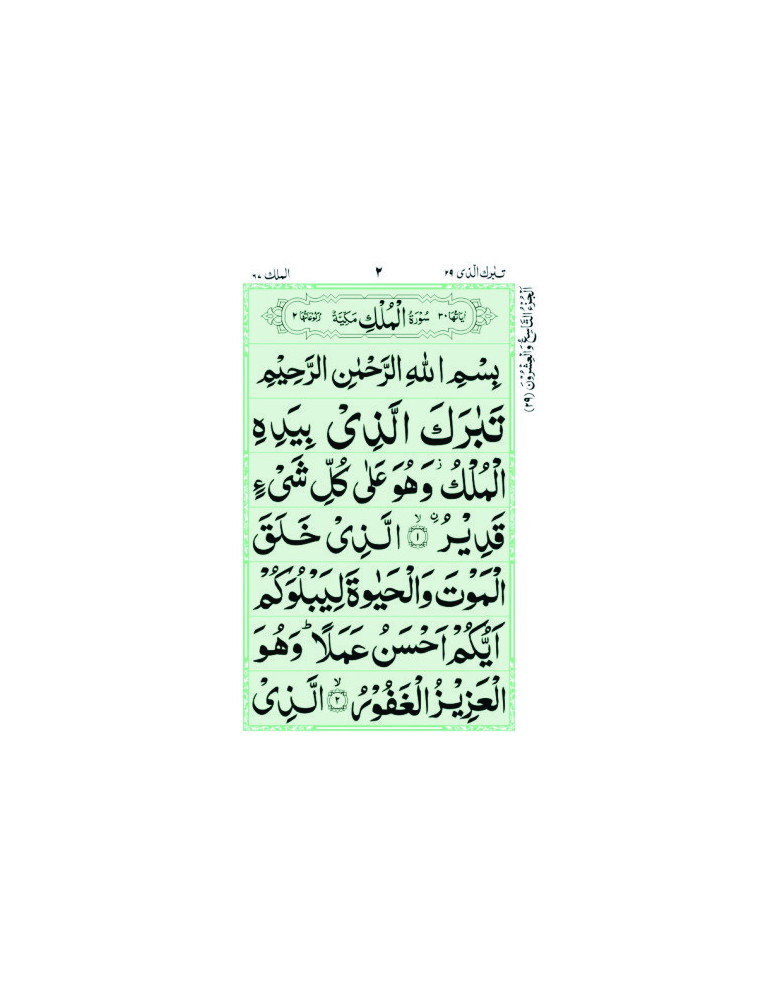 تبٰرك الّذی ٢٩
٢
الملك ٦٧
اَلْجُزْءُ التَّاسِعُ وَالْعِشْرُوْنَ (٢٩)
اٰيَاتُهَا ٣٠ سُوْرَةُ الْمُلْكِ مَكِّيَّةٌ رُكُوْعَاتُهَا ٢
بِسْمِ اللهِ الرَّحْمٰنِ الرَّحِيْمِ
تَبٰرَكَ الَّذِیْ بِيَدِهِ
الْمُلْكُ ز وَهُوَ عَلٰی كُلِّ شَیْءٍ
قَدِيْرُ ۨ ۙ ١ الَّذِیْ خَلَقَ
الْمَوْتَ وَالْحَيٰوةَ لِيَبْلُوَكُمْ
اَيُّكُمْ اَحْسَنُ عَمَلًا ؕ وَهُوَ
الْعَزِيْزُ الْغَفُوْرُ ۙ ٢ الَّذِیْ